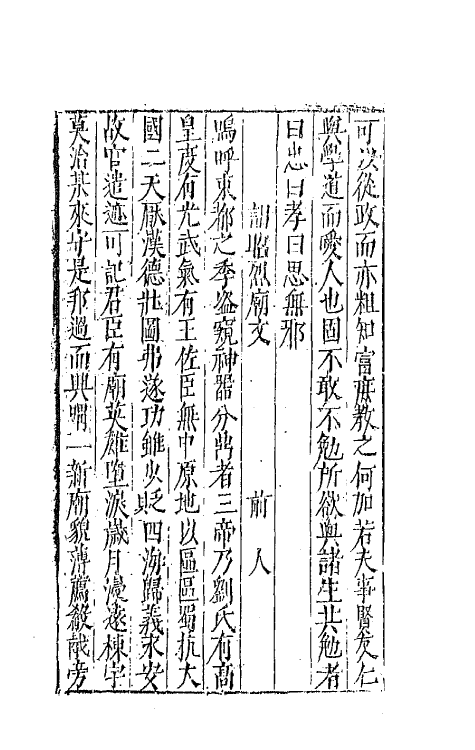 可以從政而亦粗知富庶教之何加若夫事賢友仁
與學道而愛人也固不敢不勉所欲與諸生共勉者
曰忠曰孝曰思無邪
謁昭烈廟文 前人
嗚呼東都之季盜窺神器分鼎者三帝乃劉氏有高
皇度有光武氣有王佐臣無中原地以區區蜀抗大
國二天厭漢德壯圖弗遂功雖少貶四海歸義永安
故宮遺迹可記君臣有廟英雄墮淚歲月漫遠棟宇
莫治某來守是邦過而興喟一新廟貌薄薦殽胾旁